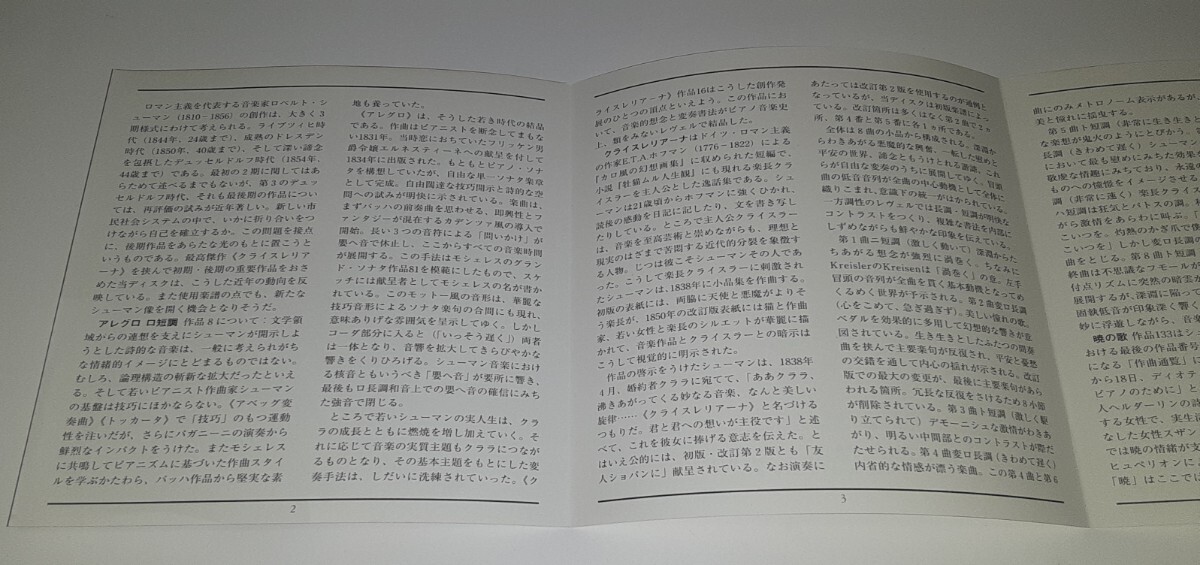 ロマン主義を代表する音楽家ロベルト・シ
ューマン (1810-1856) の創作は、大きく3
期様式にわけて考えられる。ライプツィヒ時
代 (1844年、24歳まで)、成熟のドレスデン
時代 (1850年、40歳まで)、そして深い諦念
を包摂したデュッセルドルフ時代 (1854年、
44歳まで) である。最初の2期に関してはあ
らためて述べるまでもないが、第3のデュッ
セルドルフ時代、それも最後期の作品につい
ては、再評価の試みが近年著しい。新しい市
民社会システムの中で、いかに折り合いをつ
けながら自己を確立するか。この問題を接点
に、後期作品をあらたな光のもとに置こうと
いうものである。最高傑作《クライスレリア
ーナ》を挟んで初期・後期の重要作品をおさ
めた当ディスクは、こうした近年の動向を反
映している。また使用楽譜の点でも、新たな
シューマン像を開く機会となりそうだ。
アレグロ ロ短調 作品8について：文学領
域からの連想を支えにシューマンが開示しよ
うとした詩的な音楽は、一般に考えられがち
な情緒的イメージにとどまるものではない。
むしろ、論理構造の斬新な拡大だったといえ
る。そして若いピアニスト作曲家シューマン
の基盤は技巧にほかならない。《アベッグ変
奏曲》《トッカータ》で「技巧」のもつ運動
性を注いだが、さらにパガニーニの演奏から
鮮烈なインパクトをうけた。またモシェレス
に共鳴してピアニズムに基づいた作曲スタイ
ルを学ぶかたわら、バッハ作品から堅実な素
地も養っていた。
《アレグロ》は、そうした若き時代の結晶
である。作曲はピアニストを断念してまもな
い1831年。当時恋におちていたフリッケン男
爵令嬢エルネスティーネへの献呈を付して
1834年に出版された。もともとピアノ・ソナ
タを構想していたが、自由な単一ソナタ楽章
として完成。自由闊達な技巧開示と詩的な空
間への試みが明快に示されている。楽曲は、
まずバッハの前奏曲を思わせる、即興性とフ
ァンタジーが混在するカデンツァ風の導入で
開始。長い3つの音符による「問いかけ」が
嬰ヘ音で休止し、ここからすべての音楽時間
が展開する。この手法はモシェレスのグラン
ド・ソナタ作品81を模範にしたもので、スケ
ッチには献呈者としてモシェレスの名が書か
れている。このモットー風の音形は、華麗な
技巧音形によるソナタ楽句の合間にも現れ、
意味ありげな雰囲気を呈示してゆく。しかし
コーダ部分に入ると (「いっそう遅く」) 両者
は一体となり、音響を拡大してきらびやかな
響きをくりひろげる。シューマン音楽におけ
る核音ともいうべき「嬰ヘ音」が要所に響き、
最後もロ長調和音上での嬰ヘ音の確信にみち
た強音で閉じる。
ところで若いシューマンの実人生は、クラ
ラの成長とともに燃焼を増し加えていく。そ
れに応じて音楽の実質主題もクララにつなが
るものとなり、その基本主題をもとにした変
奏手法は、しだいに洗練されていった。《ク
2
ライスレリアーナ》作品16はこうした創作発
展のひとつの頂点といえよう。この作品にお
いて、音楽的想念と変奏書法がピアノ音楽史
上、類をみないレヴェルで結晶した。
クライスレリアーナはドイツ・ロマン主義
の作家E.T.A.ホフマン (1776-1822) による
『カロ風の幻想画集』に収められた短編で、
小説『牡猫ムル人生観』にも現れる楽長クラ
イスラーを主人公とした逸話集である。シュ
ーマンは21歳頃からホフマンに強くひかれ、
読後の感動を日記に記したり、文を書き写し
たりしている。ところで主人公クライスラー
は、音楽を至高芸術と崇めながらも、理想と
現実のはざまで苦悶する近代的分裂を象徴す
る人物。じつは彼こそシューマンその人であ
った。こうして楽長クライスラーに刺激され
たシューマンは、1838年に小品集を作曲する。
初版の表紙には、両脇に天使と悪魔がよりそ
う楽長が、1850年の改訂版表紙には猫と作曲
家、若い女性と楽長のシルエットが華麗に描
かれて、音楽作品とクライスラーとの暗示は
こうして視覚的に明示された。
作品の啓示をうけたシューマンは、1838年
4月、婚約者クララに宛てて、「ああクララ、
沸きあがってくる妙なる音楽、なんと美しい
旋律……《クライスレリアーナ》と名づける
つもりだ。君と君への想いが主役です」と述
べて、これを彼女に捧げる意志を伝えた。と
はいえ公的には、初版・改訂第2版とも「友
人ショパンに」献呈されている。なお演奏に
あたっては改訂第2版を使用するのが通例と
なっているが、当ディスクは初版楽譜によっ
ている。改訂箇所は多くはなく第2版で2カ
所、第4番と第5番に各1カ所である。
全体は8曲の小品から構成される。深淵か
らわきあがる悪魔的な興奮、一転した慰めと
平安の世界、諦念ともうけとれる楽語、これ
らが自由な変奏のうちに展開してゆく。冒頭
曲の低音音列が全曲の中心動機として全体に
織りこまれ、意識下の統一がはかられている。
一方調性のレヴェルでは長調・短調が明快な
コントラストをつくり、複雑な書法を内部に
しずめながらも鮮やかな印象を伝えている。
第1曲ニ短調 (激しく動いて) 深淵からた
ちあがる想念が強烈に渦巻く。ちなみに
KreislerのKreisenは「渦巻く」の意。左手
冒頭の音列が全曲を貫く基本動機となってめ
くるめく世界が予示される。第2曲変ロ長調
(心をこめて、急ぎ過ぎず)。美しい憧れの歌。
ペダルを効果的に多用して幻想的な響きが意
図されている。生き生きとしたふたつの間奏
曲を挟んで主要楽句が反復され、平安と憂愁
の交錯を通して内心の揺れが示される。改訂
版での最大の変更が、最後に主要楽句があら
われる箇所。冗長な反復をさけるため8小節
が削除されている。第3曲ト短調 (激しく駆
り立てられて) デモーニッシュな激情がわきあ
がり、明るい中間部とのコントラストが際だ
たせられる。第4曲変ロ長調 (きわめて遅く)
内省的な情感が漂う楽曲。この第4曲と第6
3
曲にのみメトロノーム表示があるが、
美と憧れに揺曳する。
第5曲ト短調 (非常に生き生きと
な楽想が鬼火のようにとびかう。
長調 (きわめて遅く) シューマン
において最も慰めにみちた効果
敬虔な情趣にみちており、永遠の
ものへの憧憬をイメージさせる
調 (非常に速く) 楽長クライス
ハ短調は狂気とパトスの調。利
がら激情をあらわに叫ぶ。「
こいつを。灼熱のかぎ爪で僕
こいつを」しかし変ロ長調
曲をとじる。第8曲ト短調
終曲は不思議なフモールが
付点リズムに突然の暗雲が
展開するが、深淵に陥って
固執低音が印象深く響く
妙に浮遊しながら、音楽
暁の歌 作品133はシュ
おける最後の作品番号
になる「作曲通覧」に
から18日、ディオティ
ピアノのために」と
人ヘルダーリンの詩
する女性で、実生活
なした女性スザン
では暁の情緒が文
ヒュペリオンに
「暁」はここでは